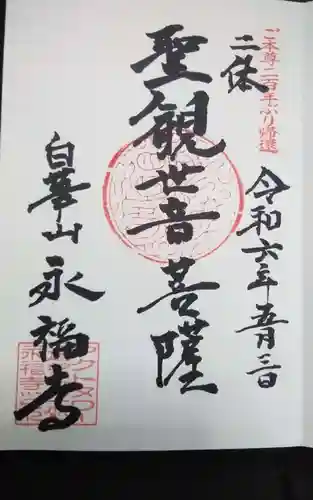 ご本尊二百年ぶり帰還
令和六年五月三日
二体
聖観世音菩薩
白華山
永福寺